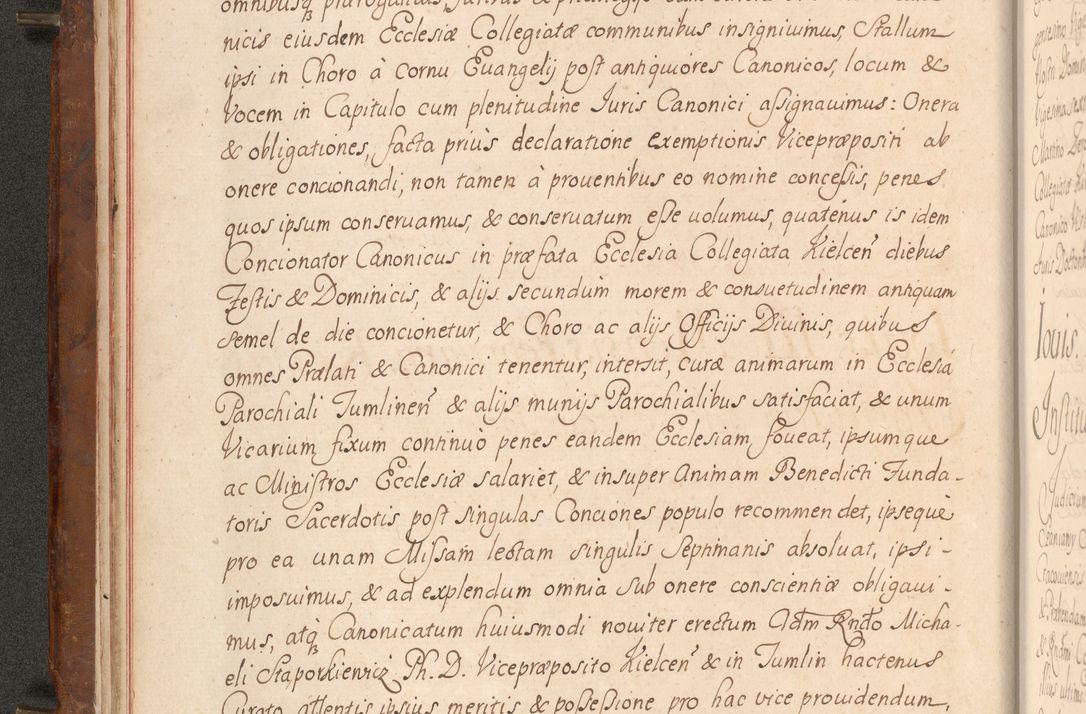 nicis eiusdem Ecclesiæ Collegiatæ communibus insigniuimus, Stallum
ipsi in Choro à cornu Euangelij post antiquiores Canonicos, locum &
Vocem in Capitulo cum plenitudine Iuris Canonici assignauimus: Onera
& obligationes, facta priùs declaratione exemptionis Vicepræpositi ab
onere concionandi, non tamen à prouentibus eo nomine concessis, penes
quos ipsum conseruamus, & conseruatum esse uolumus, quatenus is idem
Concionator Canonicus in præfata Ecclesia Collegiata Kielcen̄ diebus
Festis & Dominicis, & alijs secundùm morem & consuetudinem antiquam
semel de die concionetur, & Choro ac alijs Officijs Diuinis, quibus
omnes Prælati & Canonici tenentur, intersit, curæ animarum in Ecclesiá
Parochiali Tumlinen̄ & alijs munijs Parochialibus satisfaciat, & unum
Vicarium fixum continuò penes eandem Ecclesiam foueat, ipsumque
ac Ministros Ecclesiæ salariet, & insuper Animam Benedicti Funda-
toris Sacerdotis post singulas Conciones populo recommendet, ipseque
pro ea unam Missam lectam singulis Septimanis absoluat, ipsi-
imposuimus, & ad explendum omnia sub onere conscientiæ obligaui-
mus, atq́ꝫ Canonicatum huiusmodi nouiter erectum Adm Rndo Micha-
eli Staporkiewicz Ph. D. Vicepræposito Kielcen̄ & in Tumlin hactenus
Curato, attentis ipsius meritis & possessione pro hac vice prouidendum,
Iouis.